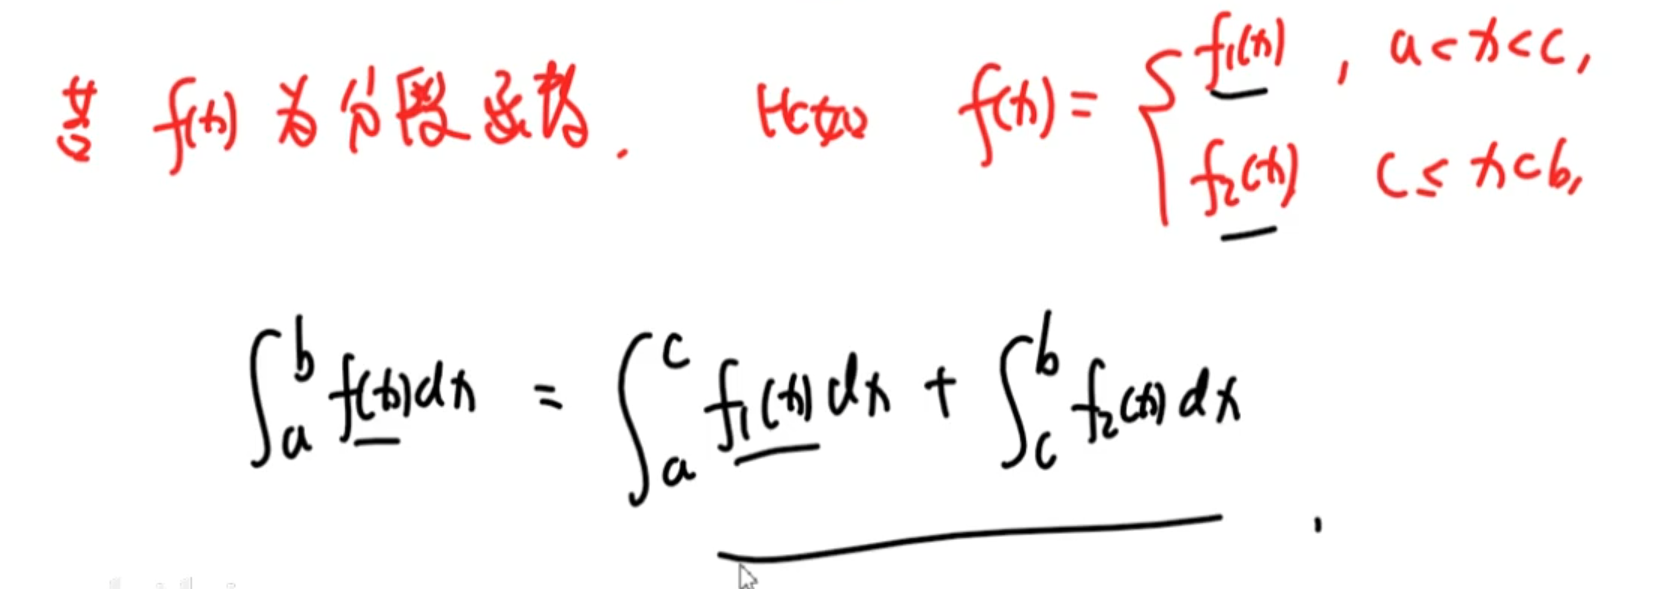 若 f(x) 为分段函数. 比如 f(x) = { f₁(x) , a < x < c,
f₂(x) c ≤ x < b,
∫ₐᵇ f(x)dx = ∫ₐᶜ f₁(x)dx + ∫꜀ᵇ f₂(x)dx .